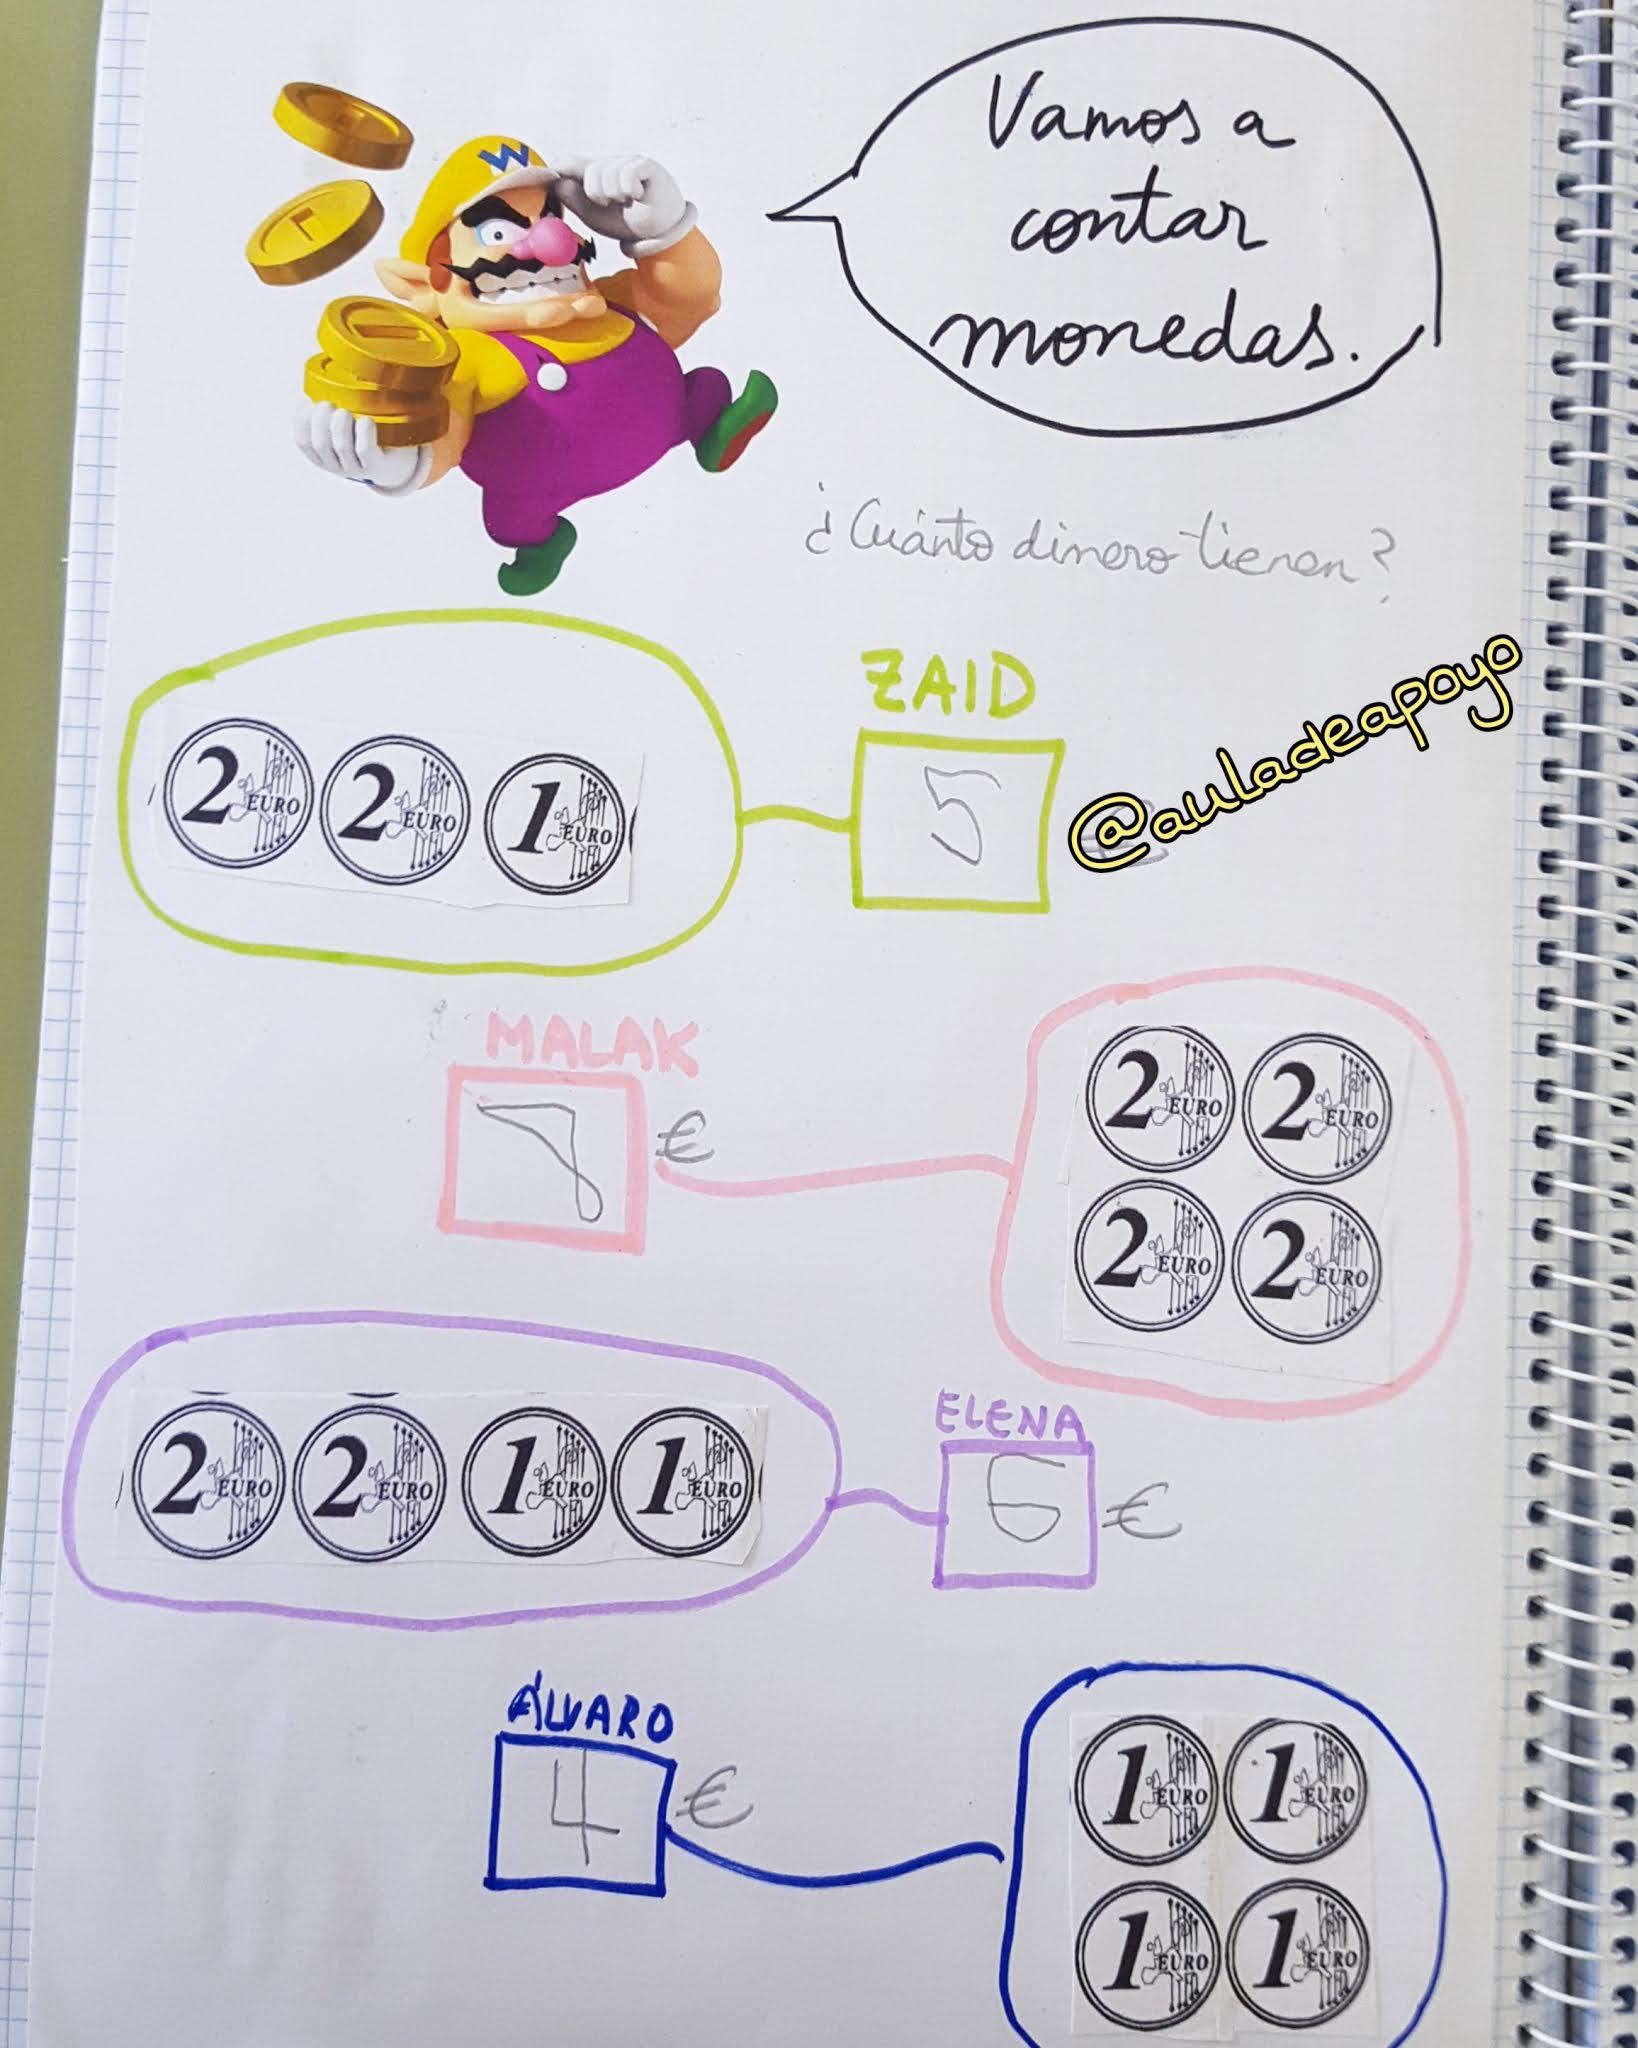 W
Vamos a
contar
monedas.
¿Cuánto dinero tienen?
ZAID
@auladeapoyo
2 EURO 2 EURO 1 EURO
5 €
MALAK
€
2 EURO 2 EURO
2 EURO 2 EURO
ELENA
2 EURO 2 EURO 1 EURO 1 EURO
6 €
ÁLVARO
4 €
1 EURO 1 EURO
1 EURO 1 EURO